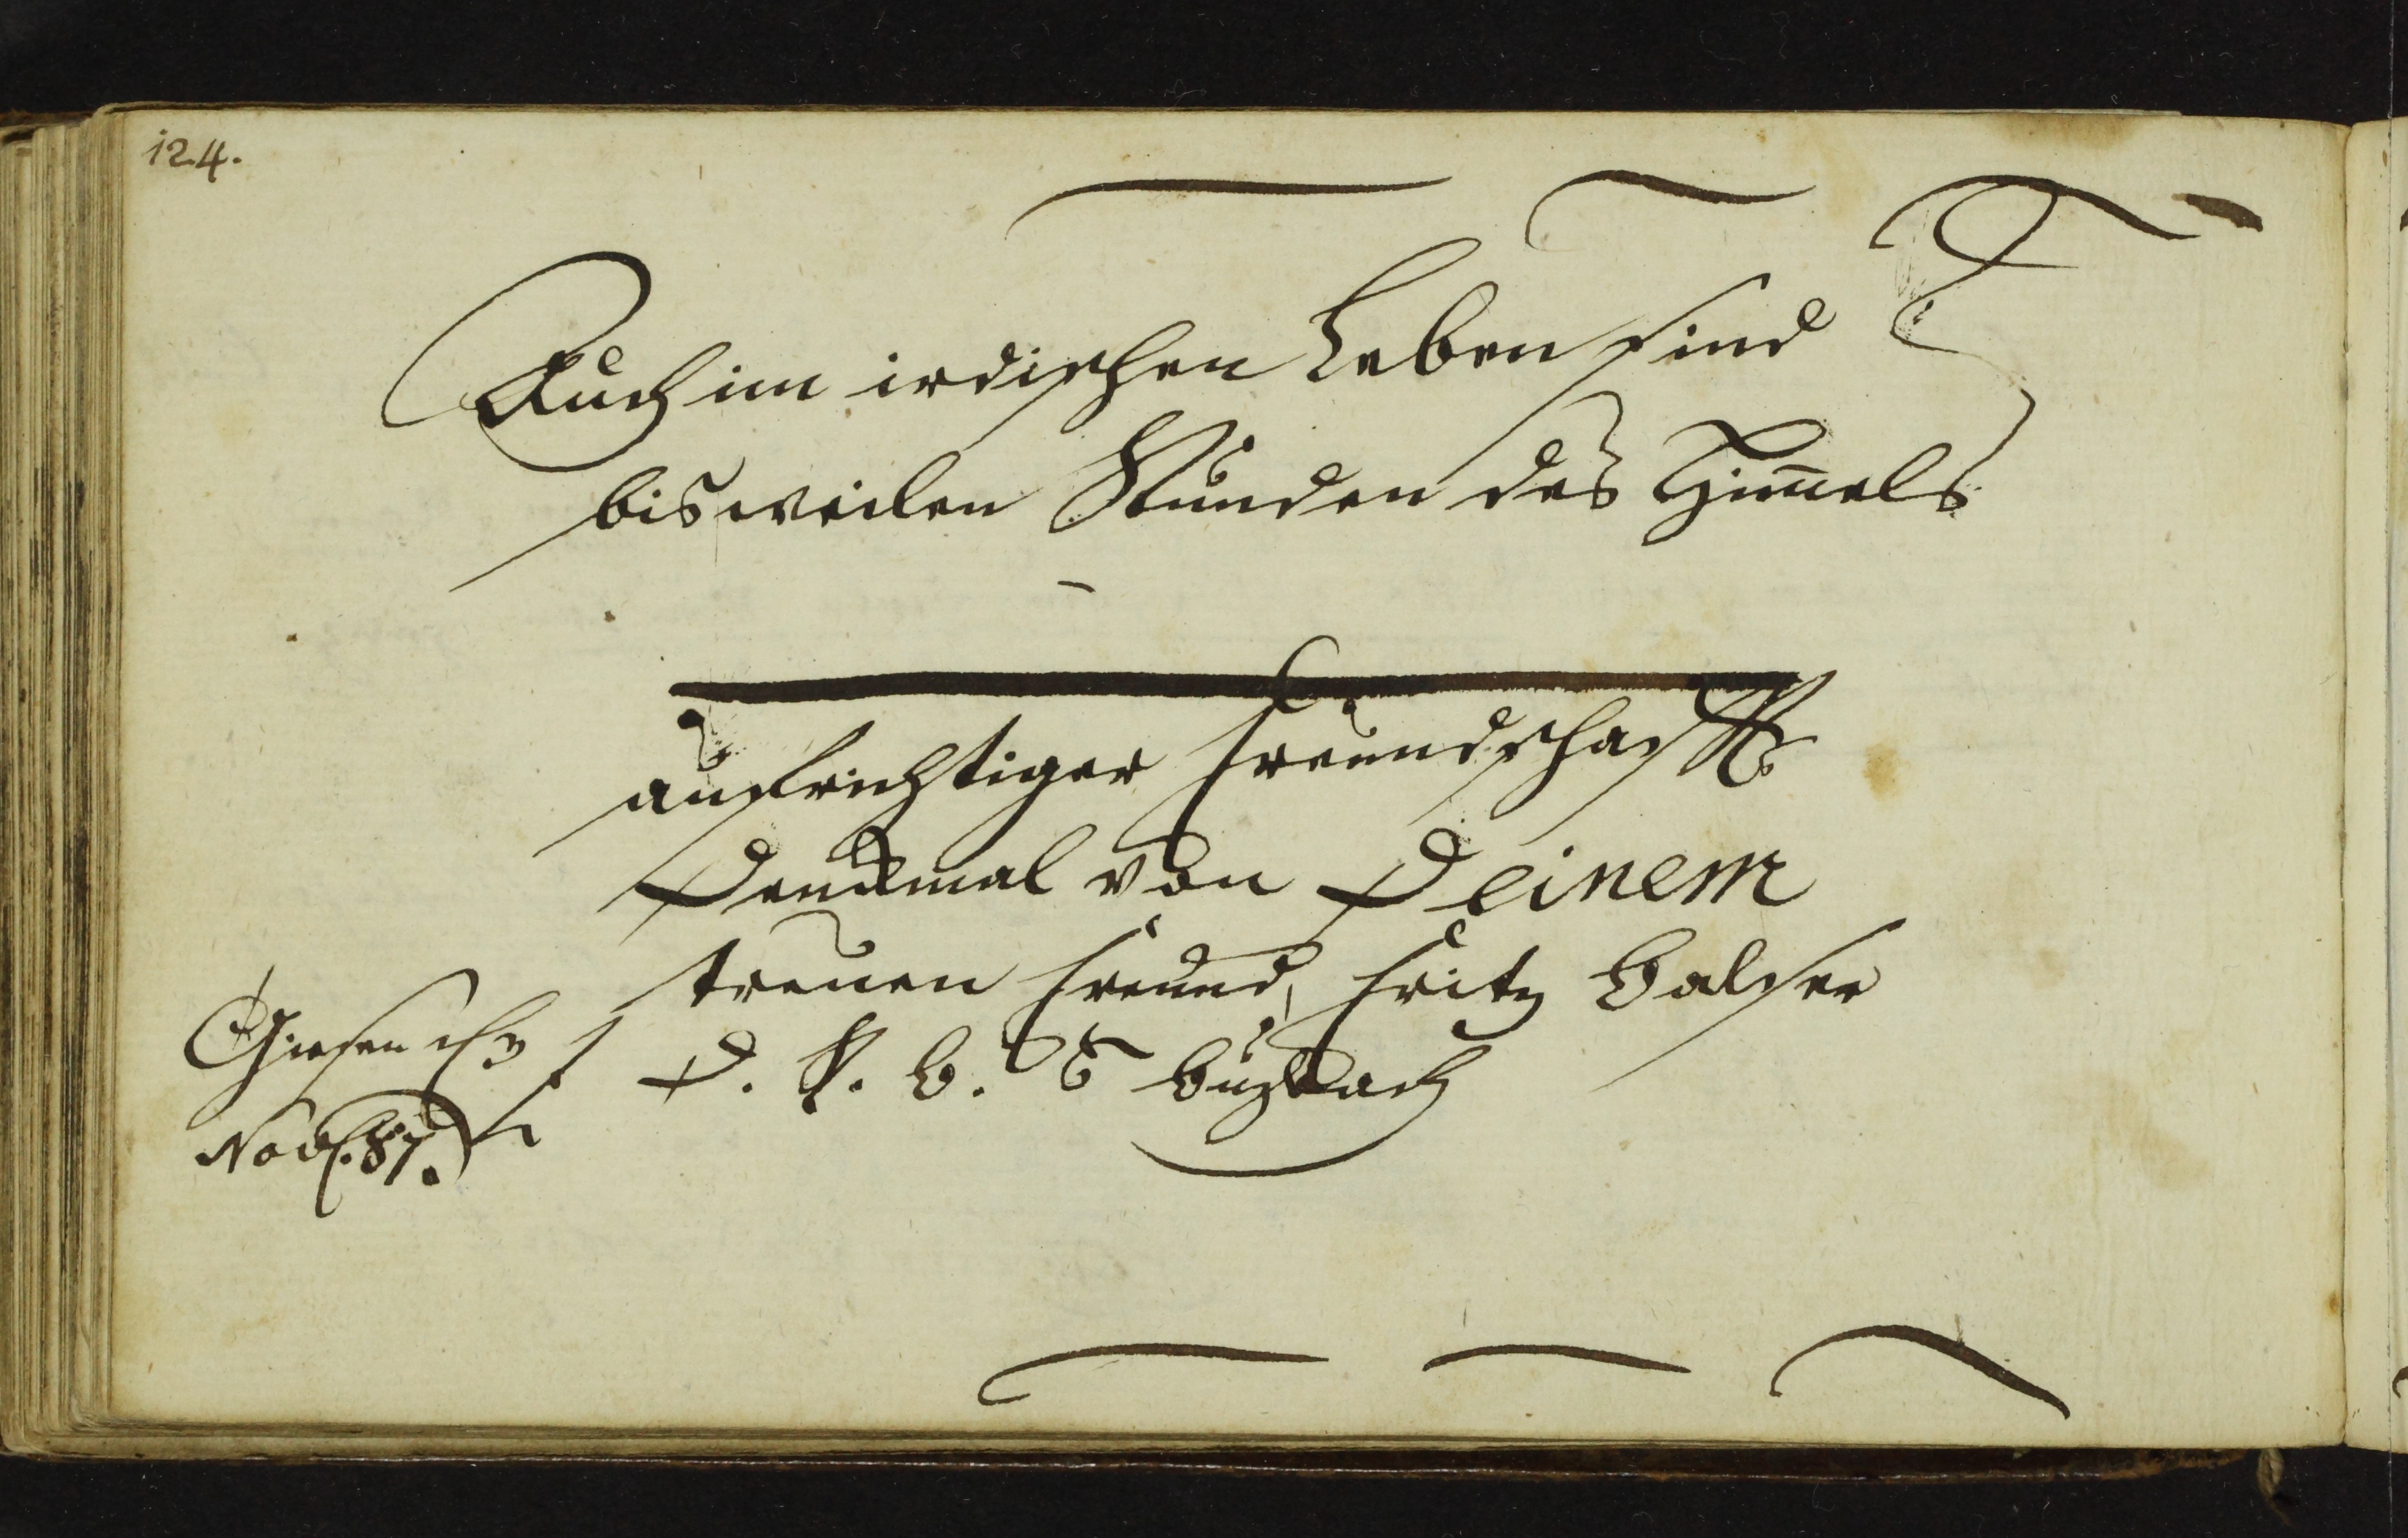 124.
Auch im irdischen Leben sind
bisweilen Stunden des Him̅els
aufrichtiger Freundschafft
Denckmal von Deinem
treuen Freund, Fritz Balser
D. R. B. a Buzbach
Giesen d. 3
Nov. 87.